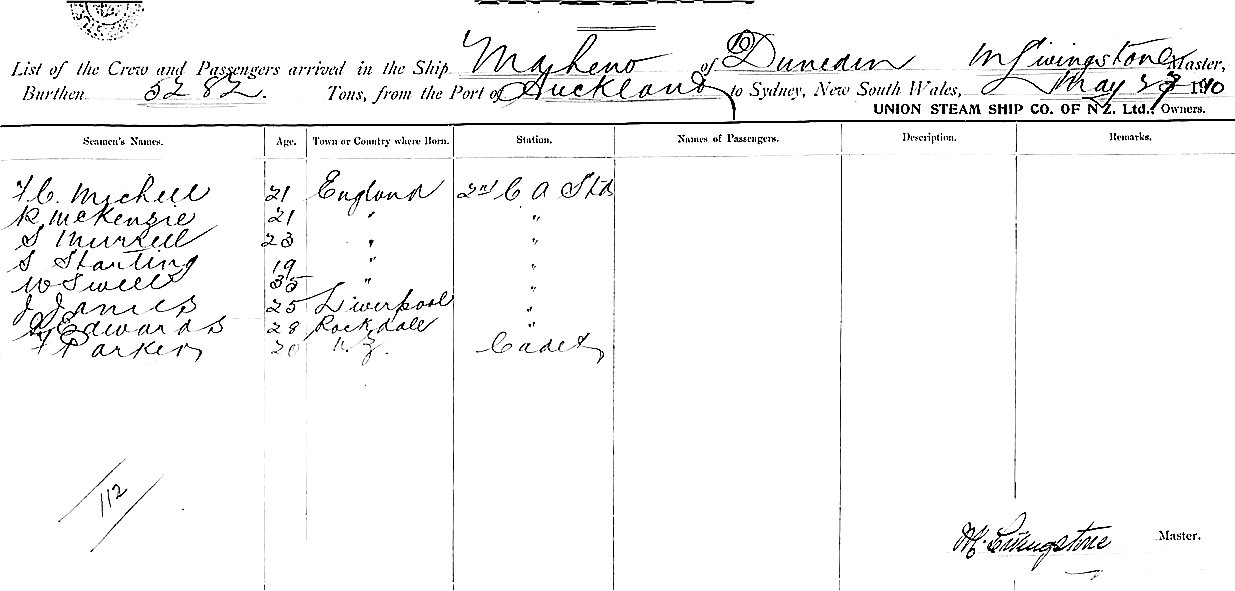 List of the Crew and Passengers arrived in the Ship Maheno of Dunedin M Livingstone Master,
Burthen 5282. Tons, from the Port of Auckland to Sydney, New South Wales, May 1910
UNION STEAM SHIP CO. OF N.Z. Ltd., Owners.
Seamen's Names. Age. Town or Country where Born. Station. Names of Passengers. Description. Remarks.
F C. Michell 21 England 2nd C A Std
R McKenzie 21 " "
S Murrell 23 " "
S Starting 19 " "
W Swell 35 " "
J James 25 Liverpool "
Edwards 28 Rockdale "
F Parker 20 N.Z. Cadet
112
M. Livingstone Master.